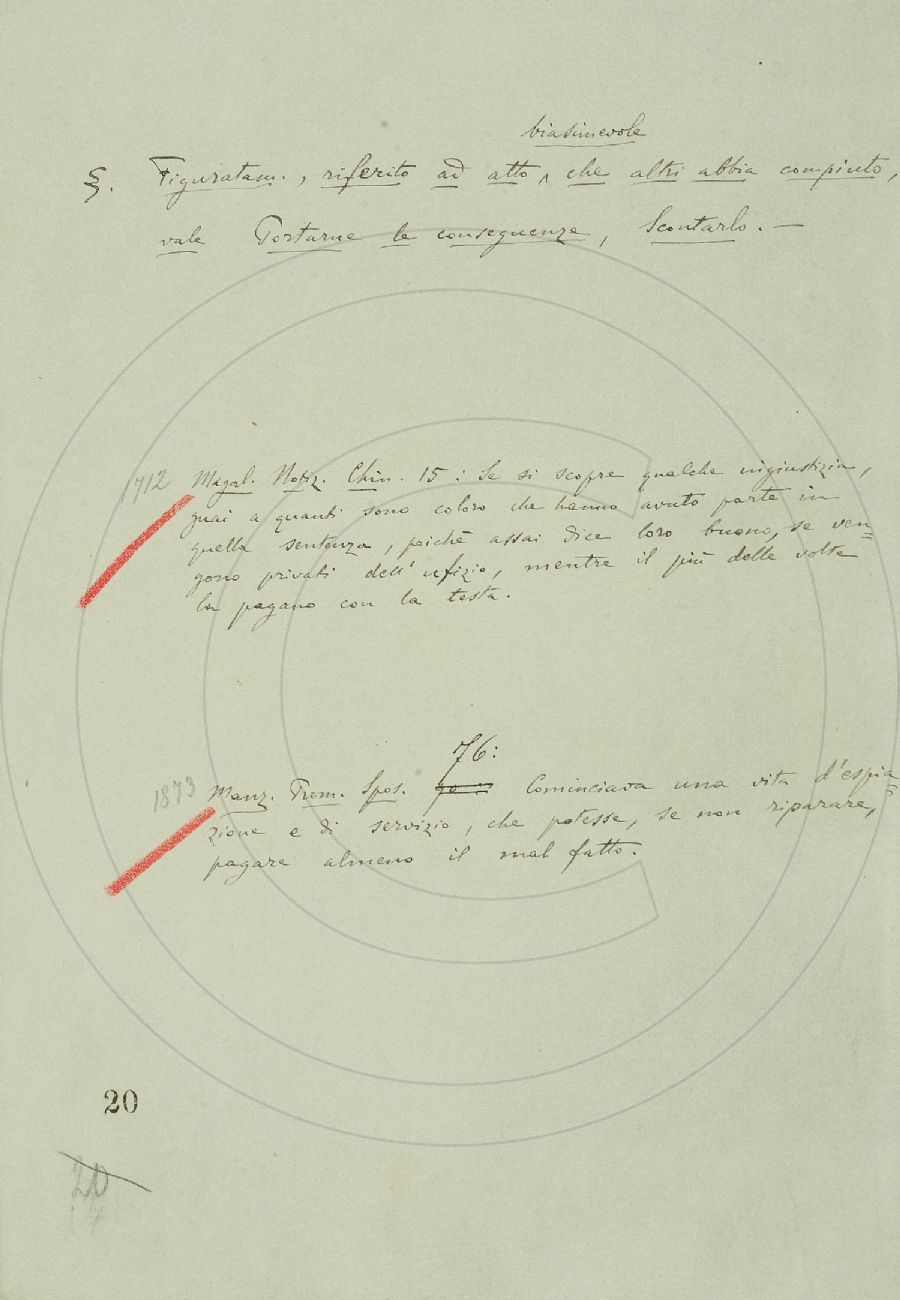 biasimevole
§. Figuratam., riferito ad atto ^ che altri abbia compiuto,
vale Portarne le conseguenze, Scontarlo. —
1712 Magal. Notiz. Chin. 15: Se si scopre qualche ingiustizia,
guai a quanti sono coloro che hanno avuto parte in
quella sentenza, poichè assai dice loro buono, se ven=
gono privati dell'ufizio, mentre il più delle volte
la pagano con la testa.
76:
1873 Manz. Prom. Spos. Cominciava una vita d'espia=
zione e di servizio, che potesse, se non riparare,
pagare almeno il mal fatto.
20
20